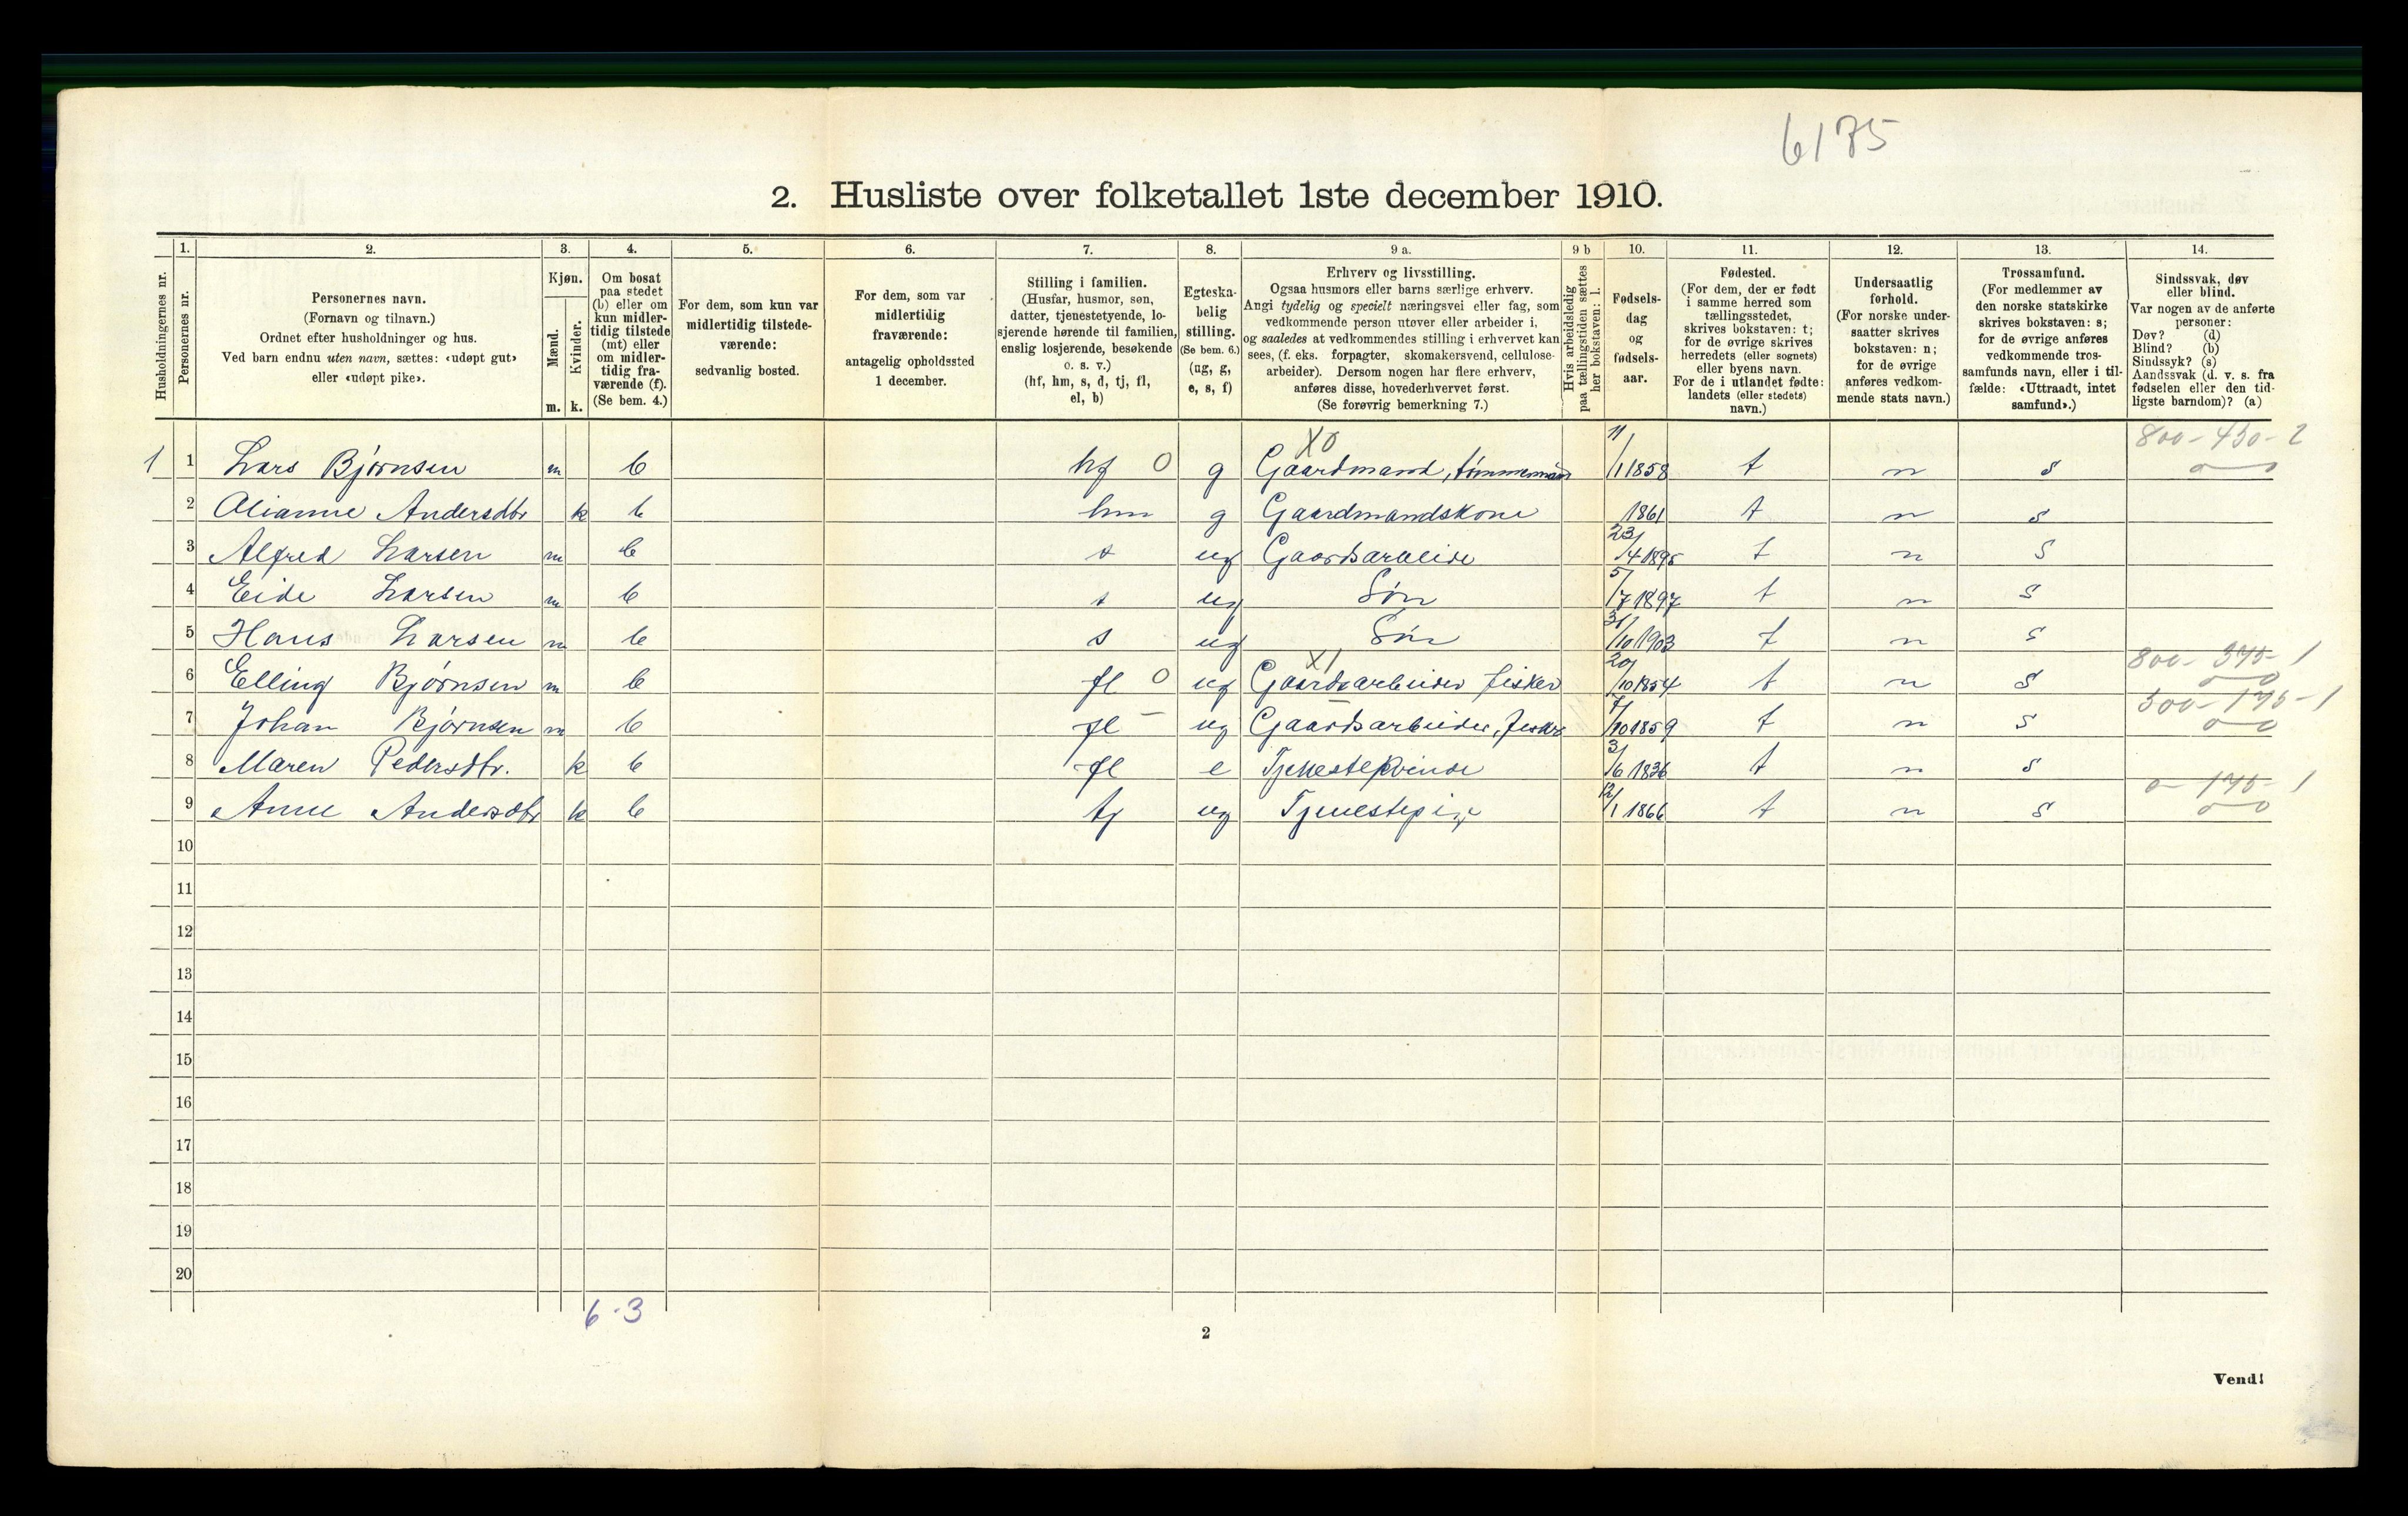 6175
2. Husliste over folketallet 1ste december 1910.
Husholdningernes nr.
1. Personernes nr.
2. Personernes navn.
(Fornavn og tilnavn.)
Ordnet efter husholdninger og hus.
Ved barn endnu uten navn, sættes: «udøpt gut»
eller «udøpt pike».
3. Kjøn.
Mænd. m.
Kvinder. k.
4. Om bosat
paa stedet
(b) eller om
kun midler-
tidig tilstede
(mt) eller
om midler-
tidig fra-
værende (f).
(Se bem. 4.)
5. For dem, som kun var
midlertidig tilstede-
værende:
sedvanlig bosted.
6. For dem, som var
midlertidig
fraværende:
antagelig opholdssted
1 december.
7. Stilling i familien.
(Husfar, husmor, søn,
datter, tjenestetyende, lo-
sjerende hørende til familien,
enslig losjerende, besøkende
o. s. v.)
(hf, hm, s, d, tj, fl,
el, b)
8. Egteska-
belig
stilling.
(Se bem. 6.)
(ug, g,
e, s, f)
9 a. Erhverv og livsstilling.
Ogsaa husmors eller barns særlige erhverv.
Angi tydelig og specielt næringsvei eller fag, som
vedkommende person utøver eller arbeider i,
og saaledes at vedkommendes stilling i erhvervet kan
sees, (f. eks. forpagter, skomakersvend, cellulose-
arbeider). Dersom nogen har flere erhverv,
anføres disse, hovederhvervet først.
(Se forøvrig bemerkning 7.)
9 b Hvis arbeidsledig
paa tællingstiden sættes
her bokstaven: l.
10. Fødsels-
dag
og
fødsels-
aar.
11. Fødested.
(For dem, der er født
i samme herred som
tællingsstedet,
skrives bokstaven: t;
for de øvrige skrives
herredets (eller sognets)
eller byens navn.
For de i utlandet fødte:
landets (eller stedets)
navn.)
12. Undersaatlig
forhold.
(For norske under-
saatter skrives
bokstaven: n;
for de øvrige
anføres vedkom-
mende stats navn.)
13. Trossamfund.
(For medlemmer av
den norske statskirke
skrives bokstaven: s;
for de øvrige anføres
vedkommende tros-
samfunds navn, eller i til-
fælde: «Uttraadt, intet
samfund».)
14. Sindssvak, døv
eller blind.
Var nogen av de anførte
personer:
Døv? (d)
Blind? (b)
Sindssyk? (s)
Aandssvak (d. v. s. fra
fødselen eller den tid-
ligste barndom)? (a)
X0 800-450-2
1 1 Lars Bjørnsen m b hf 0 g Gaardmand, tømmermand 11/1 1858 t n s 0 0
2 Alianne Andersdtr k b hm g Gaardmandskone 1861 t n s
3 Alfred Larsen m b s ug Gaardsarbeide 23/4 1895 t n s
4 Eide Larsen m b s ug Søn 5/7 1897 t n s
5 Hans Larsen m b s ug Søn 31/10 1903 t n s
X1 800-375-1
6 Elling Bjørnsen m b fl 0 ug Gaardsarbeider fisker 20/10 1854 t n s 0 0
300-175-1
7 Johan Bjørnsen m b fl - ug Gaardsarbeider, fisker 7/10 1859 t n s 0 0
8 Maren Pedersdtr. k b fl e Tjenestekvinde 3/6 1836 t n s
0-175-1
9 Anne Andersdtr k b tj ug Tjenestepige 12/1 1866 t n s 0 0
10
11
12
13
14
15
16
17
18
19
20
6-3
2
Vend!